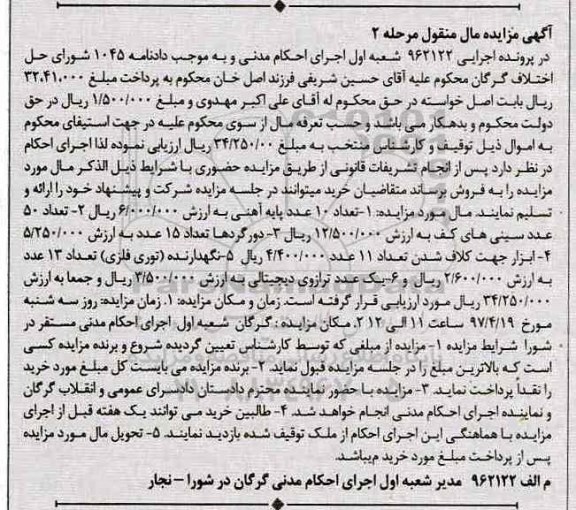 آگهی مزایده مال منقول مرحله ۲
در پرونده اجرایی ۹۶۲۱۲۲ شعبه اول اجرای احکام مدنی و به موجب دادنامه ۱۰۴۵ شورای حل
اختلاف گرگان محکوم علیه آقای حسین شریفی فرزند اصل خان محکوم به پرداخت مبلغ ۳۲،۴۱،۰۰۰
ریال بابت اصل خواسته در حق محکوم له آقای علی اکبر مهدوی و مبلغ ۱/۵۰۰/۰۰۰ ریال در حق
دولت محکوم و بدهکار می باشد و حسب تعرفه مال از سوی محکوم علیه در جهت استیفای محکوم
به اموال ذیل توقیف و کارشناس منتخب به مبلغ ۳۴/۲۵۰/۰۰ ریال ارزیابی نموده لذا اجرای احکام
در نظر دارد پس از انجام تشریفات قانونی از طریق مزایده حضوری با شرایط ذیل الذکر مال مورد
مزایده را به فروش رساند متقاضیان خرید میتوانند در جلسه مزایده شرکت و پیشنهاد خود را ارائه و
تسلیم نمایند. مال مورد مزایده: ۱-تعداد ۱۰ عدد پایه آهنی به ارزش ۶/۰۰۰/۰۰۰ ریال ۲- تعداد ۵۰
عدد سینی های کف به ارزش ۱۲/۵۰۰/۰۰۰ ریال ۳- دورگردها تعداد ۱۵ عدد به ارزش ۵/۲۵۰/۰۰۰
۴- ابزار جهت کلاف شدن تعداد ۱۱ عدد ۴/۴۰۰/۰۰۰ ریال ۵-نگهدارنده (توری فلزی) تعداد ۱۳ عدد
به ارزش ۲/۶۰۰/۰۰۰ ریال و ۶-یک عدد ترازوی دیجیتالی به ارزش ۳/۵۰۰/۰۰۰ ریال و جمعا به ارزش
۳۴/۲۵۰/۰۰۰ ریال مورد ارزیابی قرار گرفته است. زمان و مکان مزایده: ۱. زمان مزایده: روز سه شنبه
مورخ ۹۷/۴/۱۹ ساعت ۱۱ الی ۱۲ ۲. مکان مزایده : گرگان شعبه اول اجرای احکام مدنی مستقر در
شورا شرایط مزایده ۱- مزایده از مبلغی که توسط کارشناس تعیین گردیده شروع و برنده مزایده کسی
است که بالاترین مبلغ را در جلسه مزایده قبول نماید. ۲- برنده مزایده می بایست کل مبلغ مورد خرید
را نقداً پرداخت نماید. ۳- مزایده با حضور نماینده محترم دادستان دادسرای عمومی و انقلاب گرگان
و نماینده اجرای احکام مدنی انجام خواهد شد. ۴- طالبین خرید می توانند یک هفته قبل از اجرای
مزایده با هماهنگی این اجرای احکام از ملک توقیف شده بازدید نمایند. ۵- تحویل مال مورد مزایده
پس از پرداخت مبلغ مورد خرید میباشد.
م الف ۹۶۲۱۲۲ مدیر شعبه اول اجرای احکام مدنی گرگان در شورا – نجار